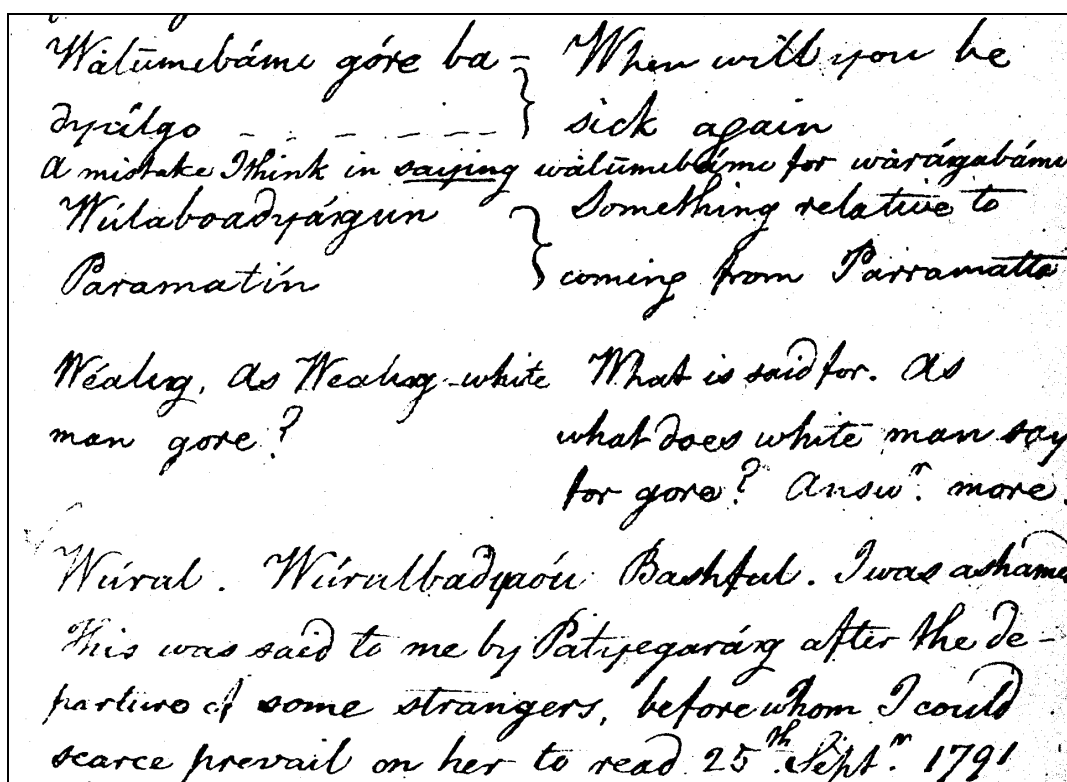 Wālūmebáme góre ba- } When will you be
dyālgo - - - - - - } sick again
A mistake I think in saying wālūmebáme for wārágabáme
Wúlaboadyárgun } Something relative to
Paramatín } coming from Parramatta
Wéalıŋ. As Wealıŋ white What is said for. As
man gore? what does white man say
for gore? Answ.r more.
Wúral. Wúralbadyaóu Bashful. I was ashamed
This was said to me by Patyegaráŋ after the de-
parture of some strangers, before whom I could
scarce prevail on her to read 25.th Sept.r 1791